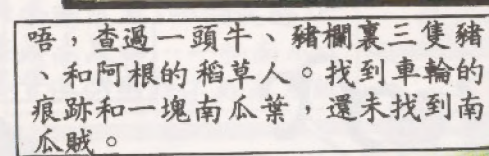 唔，查過一頭牛、豬欄裏三隻豬
、和阿根的稻草人。找到車輪的
痕跡和一塊南瓜葉，還未找到南
瓜賊。